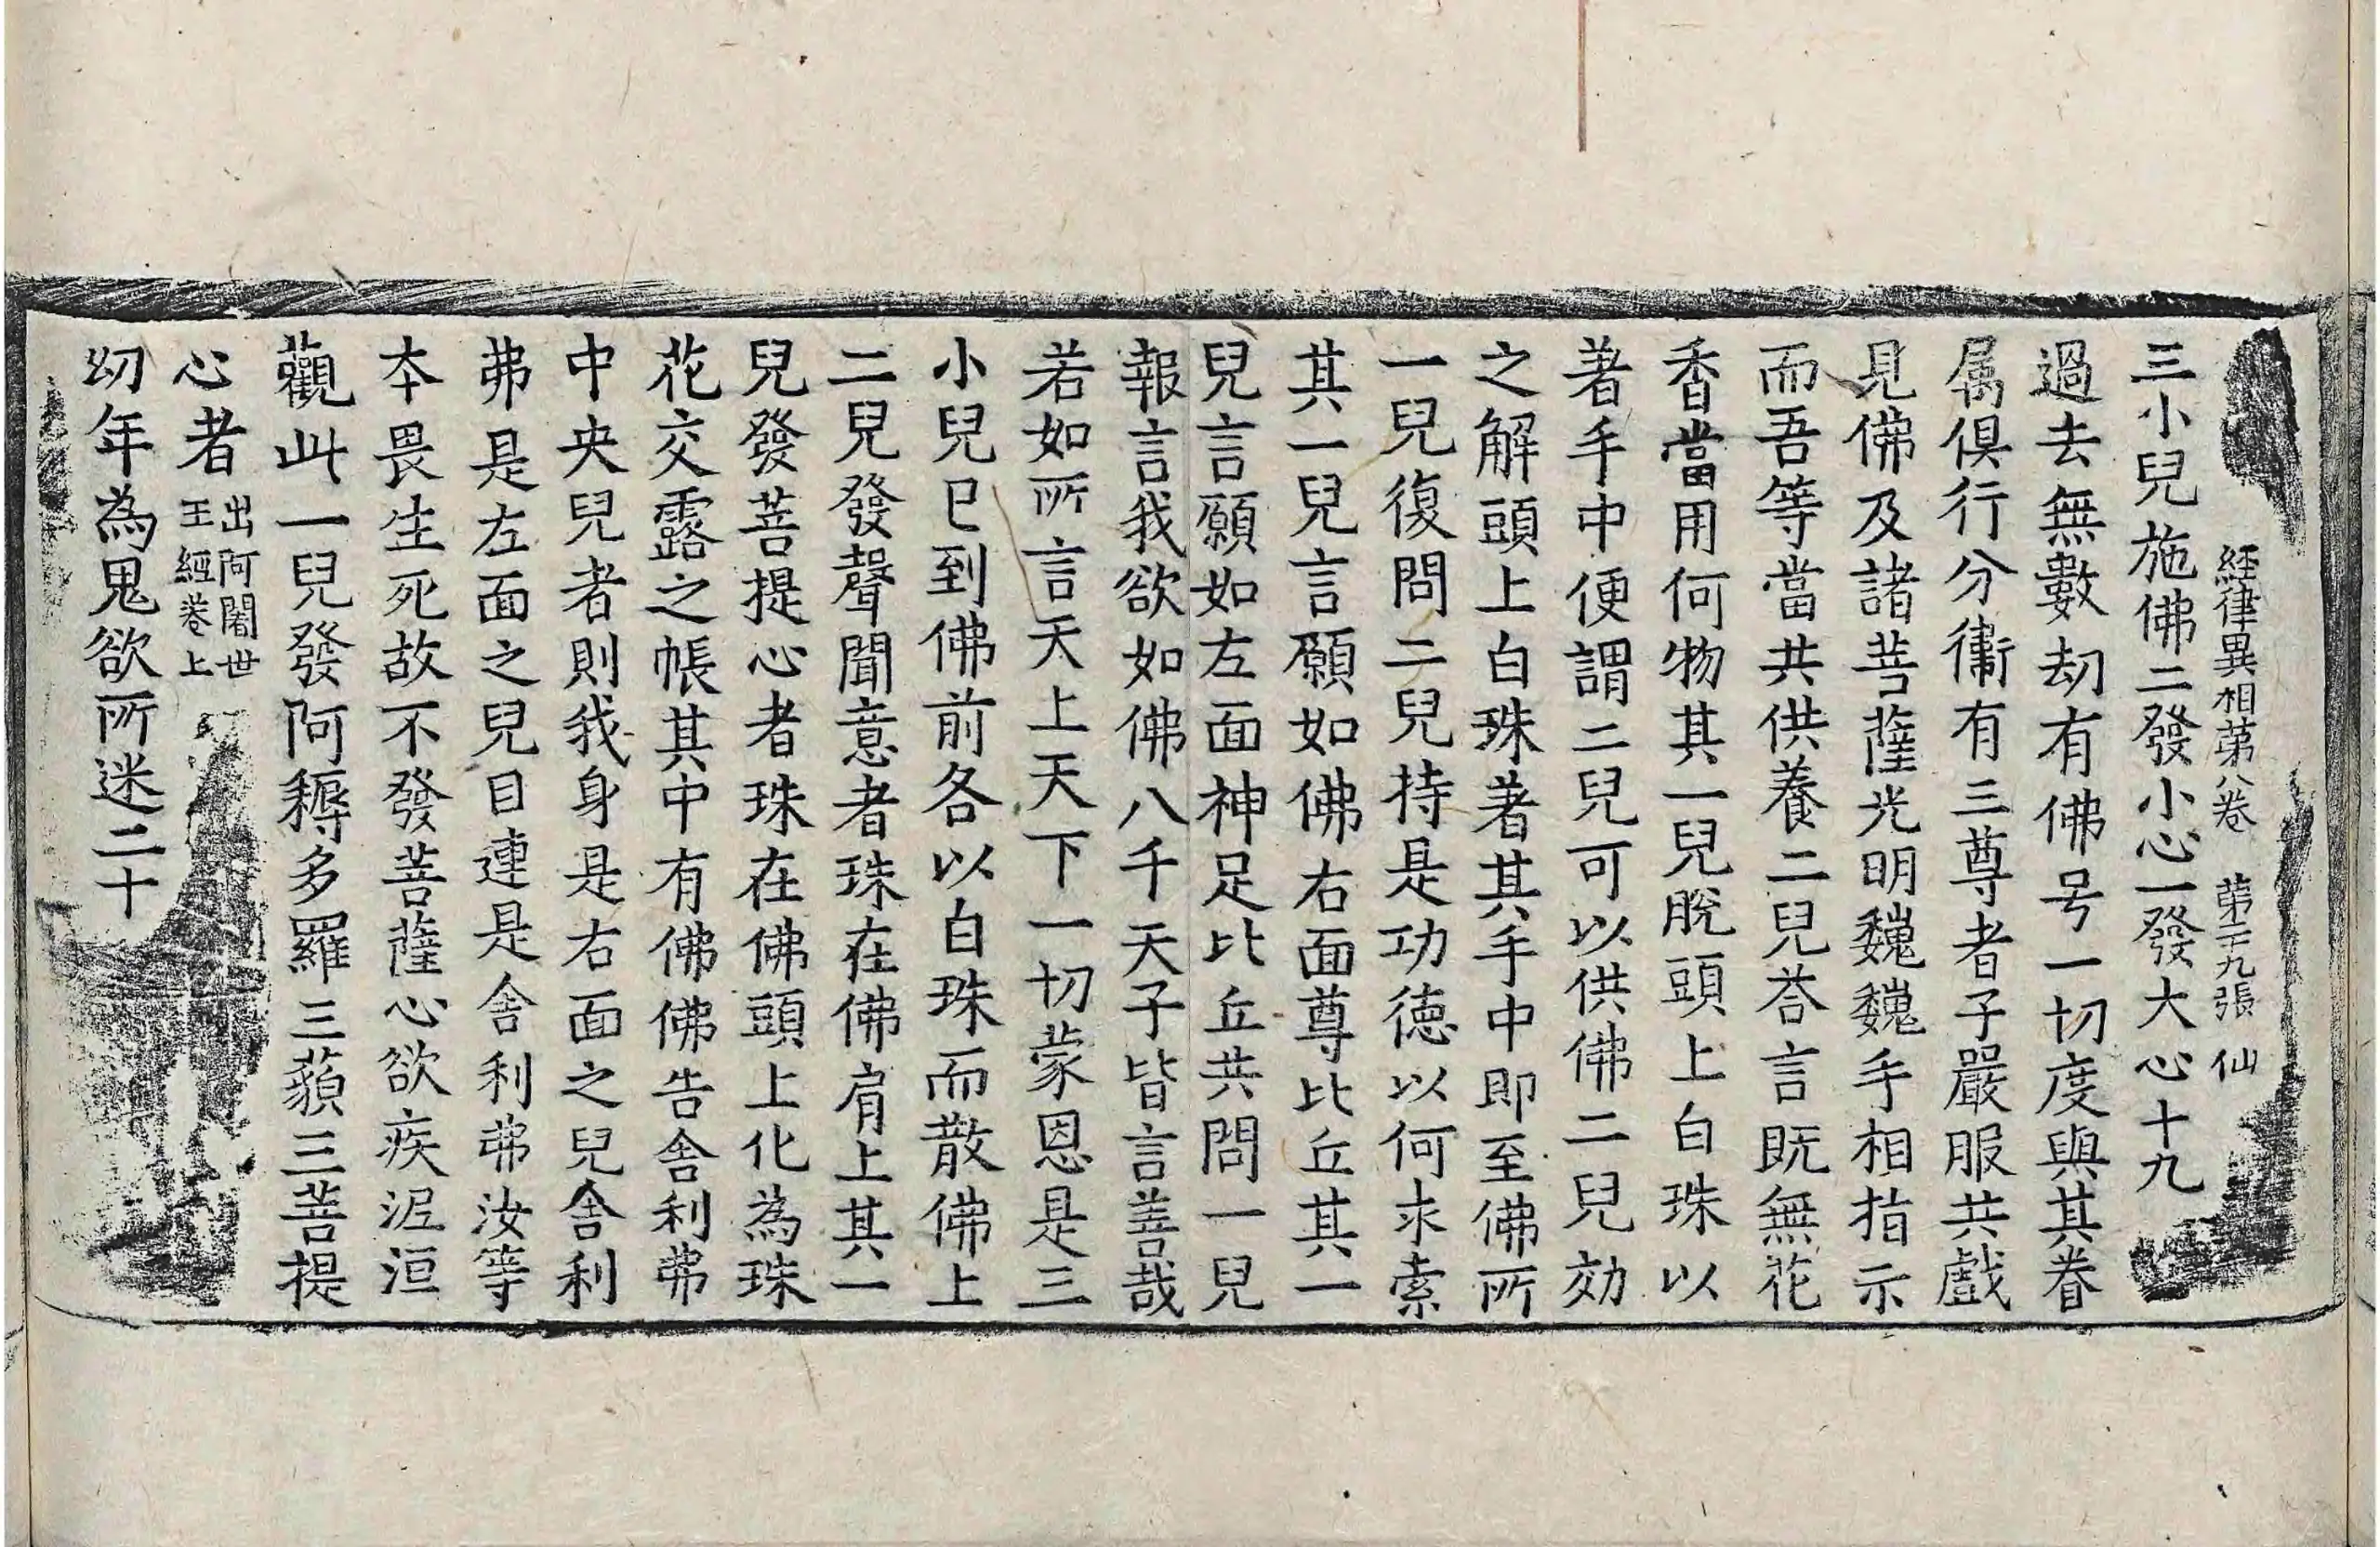 經律異相第八卷 第二十九張 仙
三小兒施佛二發小心一發大心十九
過去無數劫有佛号一切度與其眷
属俱行分衞有三尊者子嚴服共戲
見佛及諸菩薩光明巍巍手相指示
而吾等當共供養二兒荅言既無花
香當用何物其一兒脫頭上白珠以
著手中便謂二兒可以供佛二兒効
之解頭上白珠著其手中即至佛所
一兒復問二兒持是功德以何求索
其一兒言願如佛右面尊比丘其一
兒言願如左面神足比丘共問一兒
報言我欲如佛八千天子皆言善哉
若如所言天上天下一切蒙恩是三
小兒已到佛前各以白珠而散佛上
二兒發聲聞意者珠在佛肩上其一
兒發菩提心者珠在佛頭上化為珠
花交露之帳其中有佛佛告舍利弗
中央兒者則我身是右面之兒舍利
弗是左面之兒目連是舍利弗汝等
本畏生死故不發菩薩心欲疾泥洹
觀此一兒發阿耨多羅三藐三菩提
心者出阿闍世王經卷上
幼年為鬼欲所迷二十